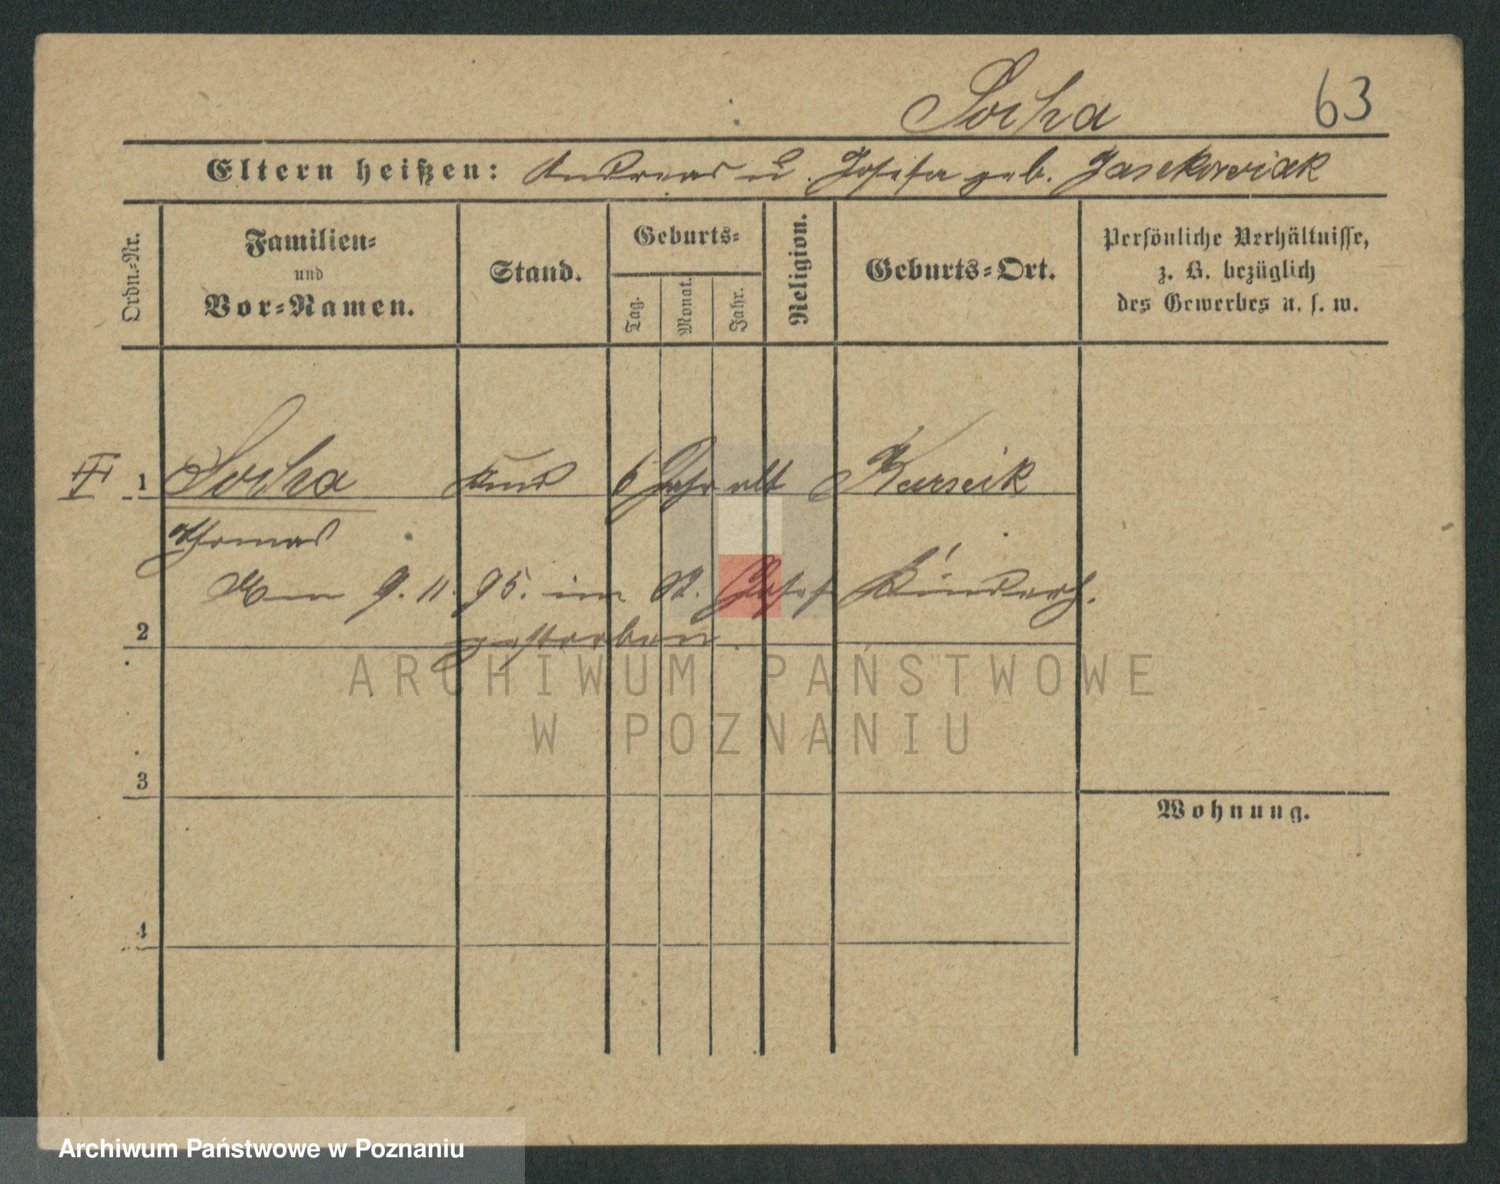 Socha 63
Eltern heißen: Andreas u. Josefa geb. Jasekowiak
Ordn.-Nr.
Familien-
und
Vor-Namen.
Stand.
Geburts-
Tag.
Monat.
Jahr.
Religion.
Geburts-Ort.
Persönliche Verhältnisse,
z. B. bezüglich
des Gewerbes u. s. w.
1 Socha Kind 6 Jahr alt Kursnik
Thomas
Am 9. 11. 95. im St. Josef Kinderh.
2 gestorben.
ARCHIWUM PAŃSTWOWE
W POZNANIU
3
Wohnung.
4
Archiwum Państwowe w Poznaniu